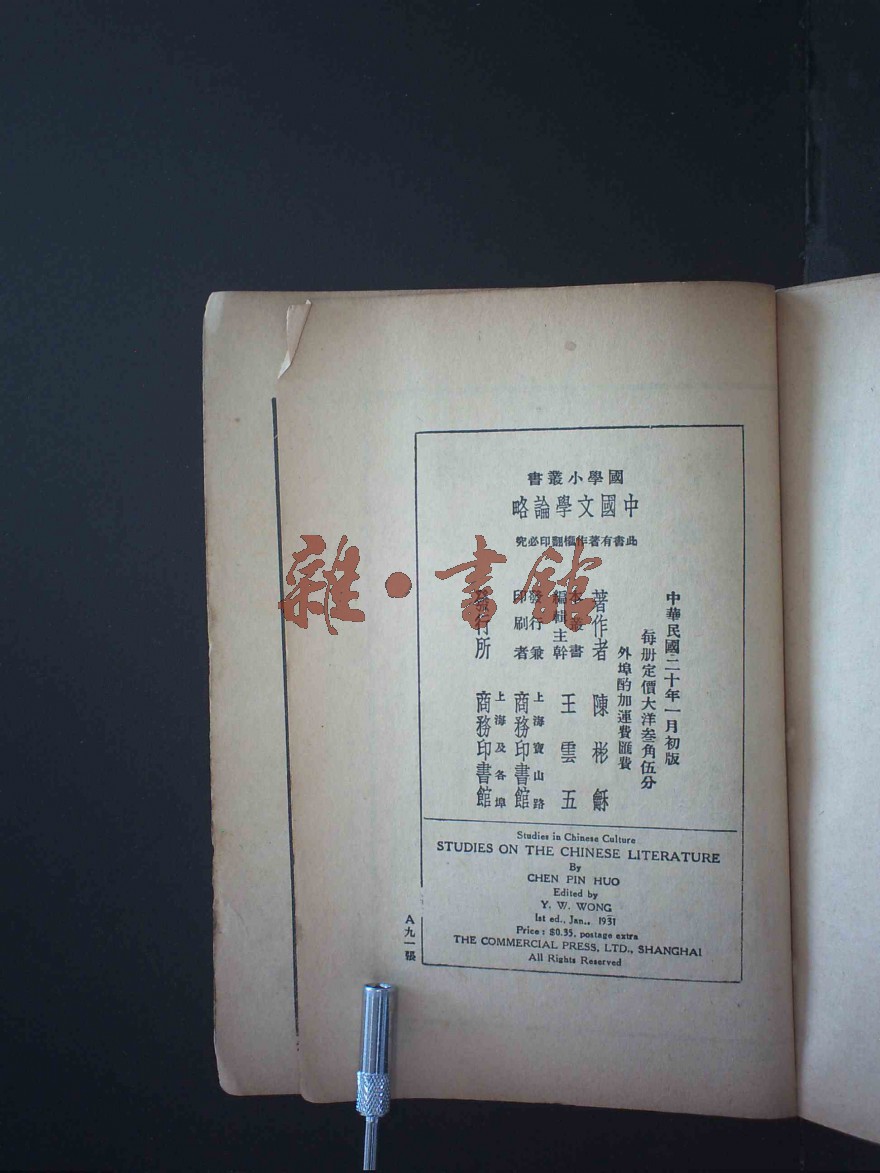 國學小叢書
中國文學論略
此書有著作權翻印必究
中華民國二十年一月初版
每册定價大洋叁角伍分
外埠酌加運費匯費
著作者 陳彬龢
本叢書編輯主幹 王雲五
發行兼印刷者 上海寶山路商務印書館
發行所 上海及各埠商務印書館
Studies in Chinese Culture
STUDIES ON THE CHINESE LITERATURE
By
CHEN PIN HUO
Edited by
Y. W. WONG
1st ed., Jan., 1931
Price: $0.35, postage extra
THE COMMERCIAL PRESS, LTD., SHANGHAI
All Rights Reserved
A九一張
雜·書館